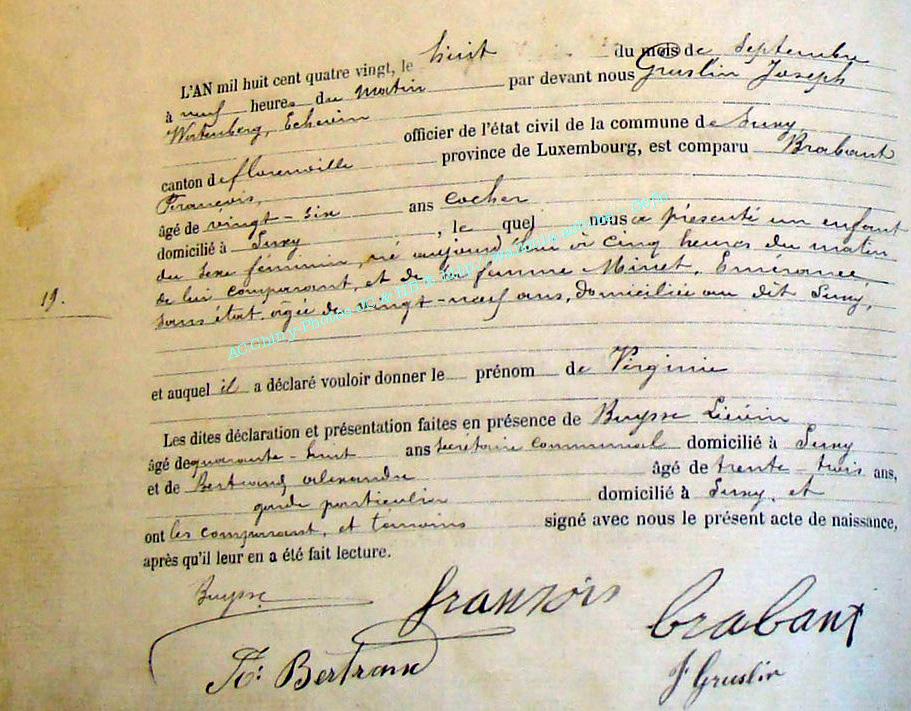 L'AN mil huit cent quatre vingt, le huit du mois de Septembre
à neuf heures du Matin par devant nous Gruslin Joseph
Wortenberg, Echevin officier de l'état civil de la commune de Suxy
canton de florenville province de Luxembourg, est comparu Brabant
François,
âgé de vingt-six ans cocher
domicilié à Suxy, le quel nous a présenté un enfant
du sexe féminin, né aujourd'hui à cinq heures du matin
de lui comparant, et de sa femme Minet, Emérance
sans état, âgée de vingt-neuf ans, domiciliée au dit Suxy,
19.
et auquel il a déclaré vouloir donner le prénom de Virginie
Les dites déclaration et présentation faites en présence de Buysse Liévin
âgé de quarante-huit ans secrétaire communal domicilié à Suxy
et de Bertrand alexandre âgé de trente-trois ans,
garde particulier domicilié à Suxy, et
ont les comparant, et témoins signé avec nous le présent acte de naissance,
après qu'il leur en a été fait lecture.
Buysse françois brabant
Bertrand J Gruslin